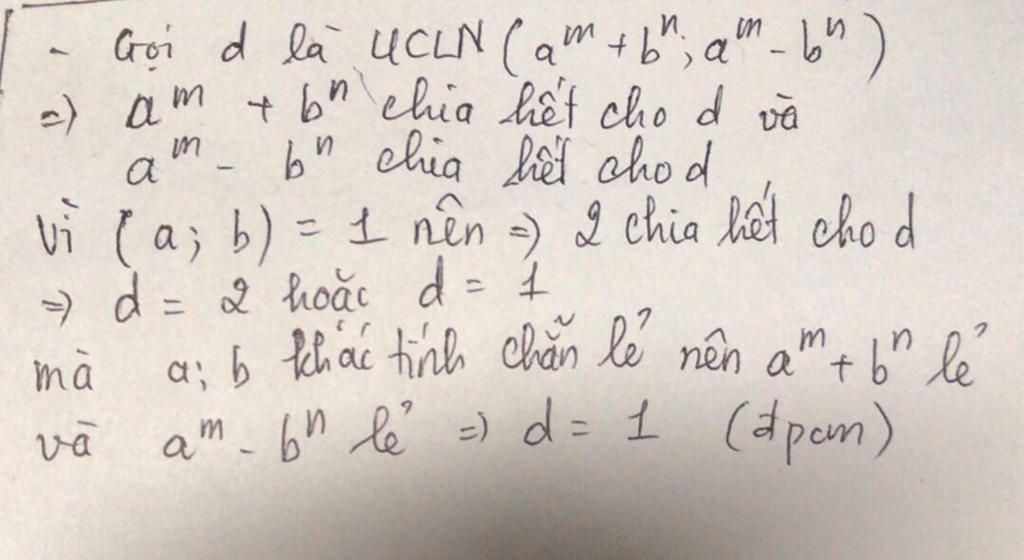 - Gọi d là ƯCLN (aᵐ + bⁿ; aᵐ - bⁿ)
=> aᵐ + bⁿ chia hết cho d và
aᵐ - bⁿ chia hết cho d
vì (a; b) = 1 nên => 2 chia hết cho d
=> d = 2 hoặc d = 1
mà a; b khác tính chẵn lẻ nên aᵐ + bⁿ lẻ
và aᵐ - bⁿ lẻ => d = 1 (đpcm)